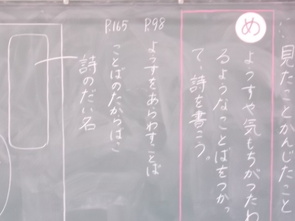 見たことかんじたこと
め
ようすや気もちがつたわ
るようなことばをつかっ
て、詩を書こう。
P.98
ようすをあらわすことば
P.165
ことばのたからばこ
詩のだい名